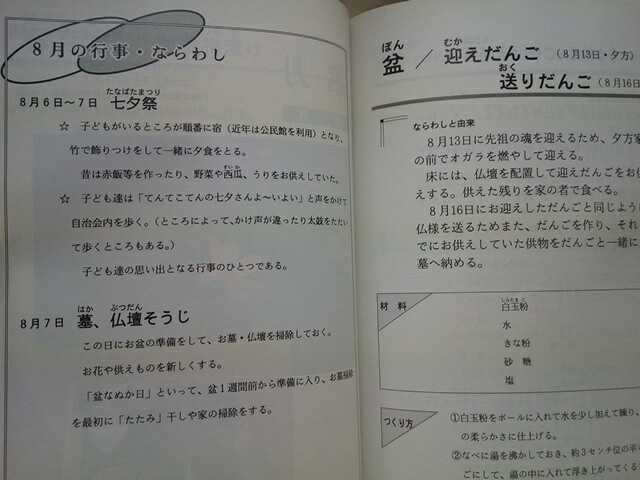 8月の行事・ならわし
たなばたまつり
8月6日～7日 七夕祭
☆ 子どもがいるところが順番に宿（近年は公民館を利用）となり、
竹で飾りつけをして一緒に夕食をとる。
すいか
昔は赤飯等を作ったり、野菜や西瓜、うりをお供えしていた。
☆ 子ども達は「てんてこてんの七夕さんよ～いよい」と声をかけて
自治会内を歩く。（ところによって、かけ声が違ったり太鼓をたたい
て歩くところもある。）
子ども達の思い出となる行事のひとつである。
はか ぶつだん
8月7日 墓、仏壇そうじ
この日にお盆の準備をして、お墓・仏壇を掃除しておく。
お花や供えものを新しくする。
「盆なぬか日」といって、盆1週間前から準備に入り、お墓掃除
を最初に「たたみ」干しや家の掃除をする。
ぼん むか
盆／迎えだんご（8月13日・夕方）
おく
送りだんご（8月16日
ならわしと由来
8月13日に先祖の魂を迎えるため、夕方家
の前でオガラを燃やして迎える。
床には、仏壇を配置して迎えだんごをお供
えする。供えた残りを家の者で食べる。
8月16日にお迎えしただんごと同じように
仏様を送るためまた、だんごを作り、それ
でにお供えしていた供物をだんごと一緒に
墓へ納める。
材料
しらたまこ
白玉粉
水
きな粉
砂糖
塩
つくり方
①白玉粉をボールに入れて水を少し加えて練り、
の柔らかさに仕上げる。
②なべに湯を沸かしておき、約3センチ位の平
ごにして、湯の中に入れて浮き上がってくる